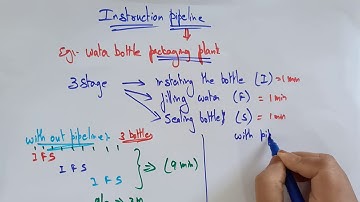 Instruction pipeline
Eg:- water bottle packaging plant
3 stage → instating the bottle (I) = 1 min
→ filling water (F) = 1 min
→ Sealing bottle (S) = 1 min
with out pipeline: 3 bottles
I F S
I F S
I F S
⇒ (9 min)
with pi